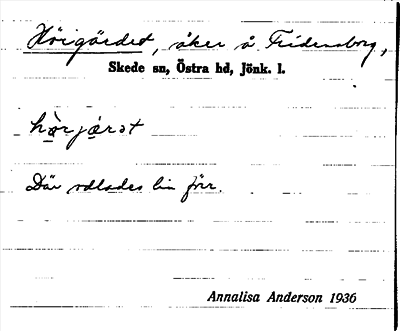 Hörigärdet, åker å Fridensborg,
Skede sn, Östra hd, Jönk. l.
hòrjǽrət
Där odlades lin förr.
Annalisa Anderson 1936